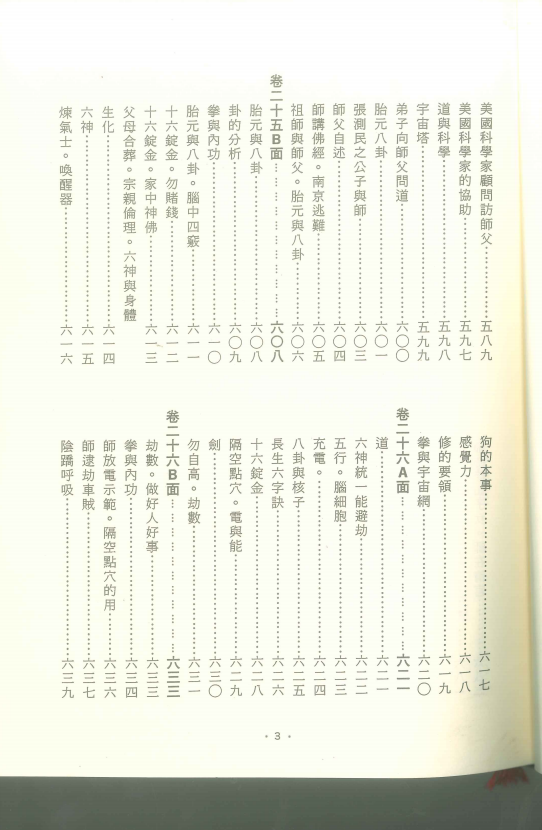 美國科學家顧問訪師父……五八九
美國科學家的協助……五九七
道與科學……五九八
宇宙塔……五九九
弟子向師父問道……六〇〇
胎元八卦……六〇一
張測民之公子與師……六〇三
師父自述……六〇四
師講佛經。南京逃難……六〇五
祖師與師父。胎元與八卦……六〇六
卷二十五B面……六〇八
胎元與八卦……六〇八
卦的分析……六〇九
拳與內功……六一〇
胎元與八卦。腦中四竅……六一一
十六錠金。勿賭錢……六一二
十六錠金。家中神佛……六一三
父母合葬。宗親倫理。六神與身體
生化……六一四
六神……六一五
煉氣士。喚醒器……六一六
狗的本事……六一七
感覺力……六一八
修的要領……六一九
拳與宇宙網……六二〇
卷二十六A面……六二一
道……六二一
六神統一能避劫……六二二
五行。腦細胞……六二三
充電。……六二四
八卦與核子……六二五
長生六字訣……六二六
十六錠金……六二八
隔空點穴。電與能……六二九
劍……六三〇
勿自高。劫數……六三一
卷二十六B面……六三三
劫數。做好人好事……六三三
拳與內功……六三四
師放電示範。隔空點穴的用……六三六
師逮劫車賊……六三七
陰蹻呼吸……六三九
• 3 •